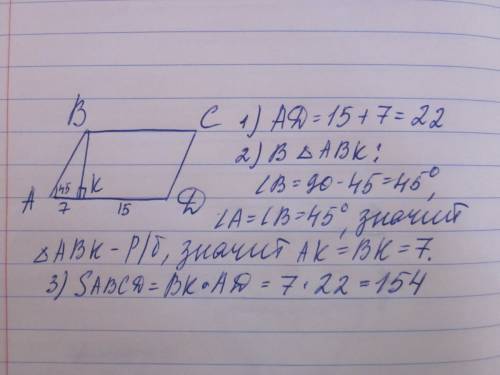 B C
A 45 K D
7 15
1) AD = 15 + 7 = 22
2) В △ABK:
∠B = 90 - 45 = 45°,
∠A = ∠B = 45°, значит
△ABK - Р/б, значит AK = BK = 7.
3) SABCD = BK • AD = 7 • 22 = 154